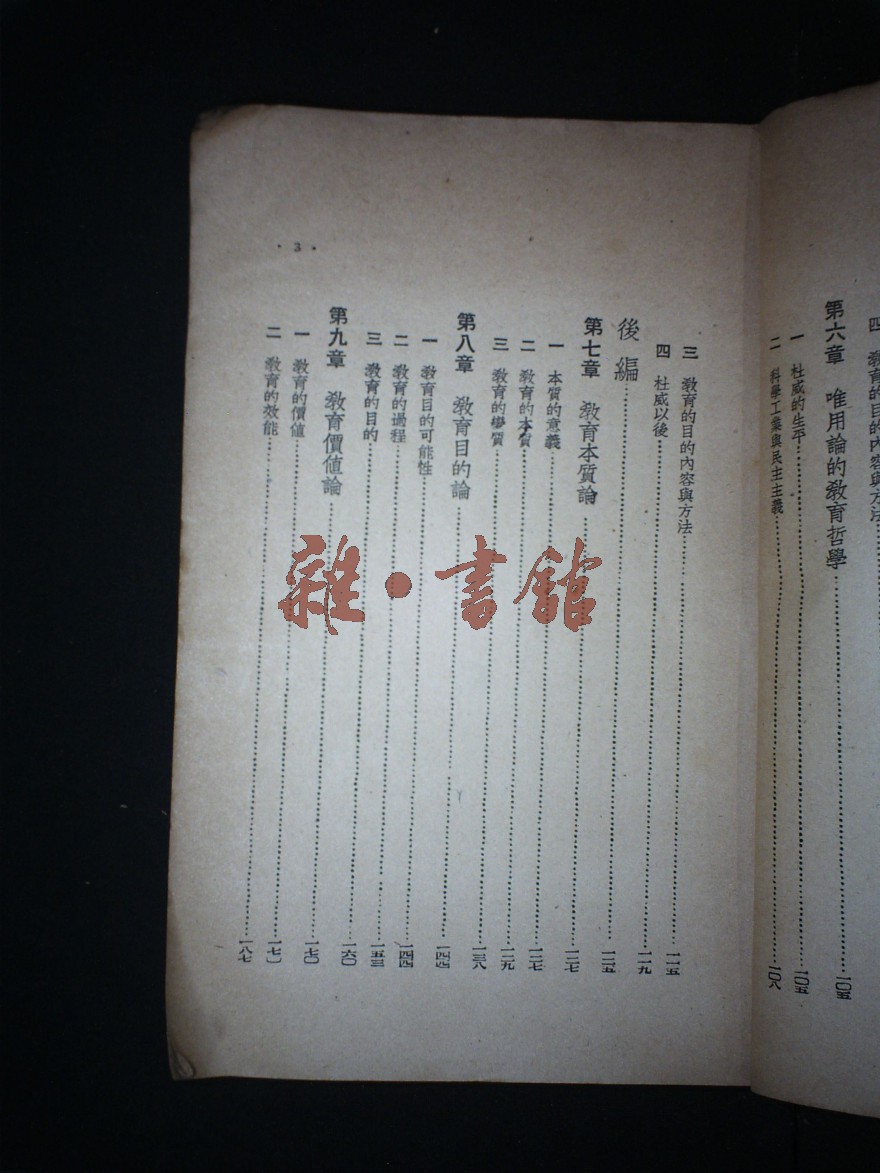 四 教育的目的內容與方法
第六章 唯用論的教育哲學……一〇五
一 杜威的生平……一〇五
二 科學工業與民主主義……一〇八
三 教育的目的內容與方法……一一五
四 杜威以後……一一九
後編……一二五
第七章 教育本質論……一二七
一 本質的意義……一二七
二 教育的本質……一二九
三 教育的變質……一三八
第八章 教育目的論……一四四
一 教育目的可能性……一四四
二 教育的過程……一五三
三 教育的目的……一六〇
第九章 教育價值論……一七〇
一 教育的價值……一七〇
二 教育的效能……一八七
· 3 ·
雜·書館